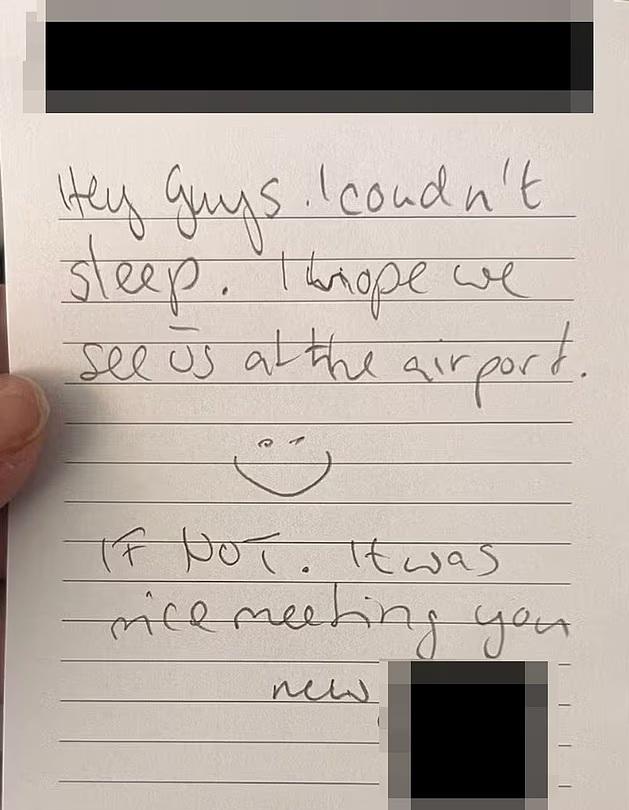 Hey Guys. I coudn't
sleep. I hope we
see us at the airport.
IF NOT. It was
nice meeting you
new